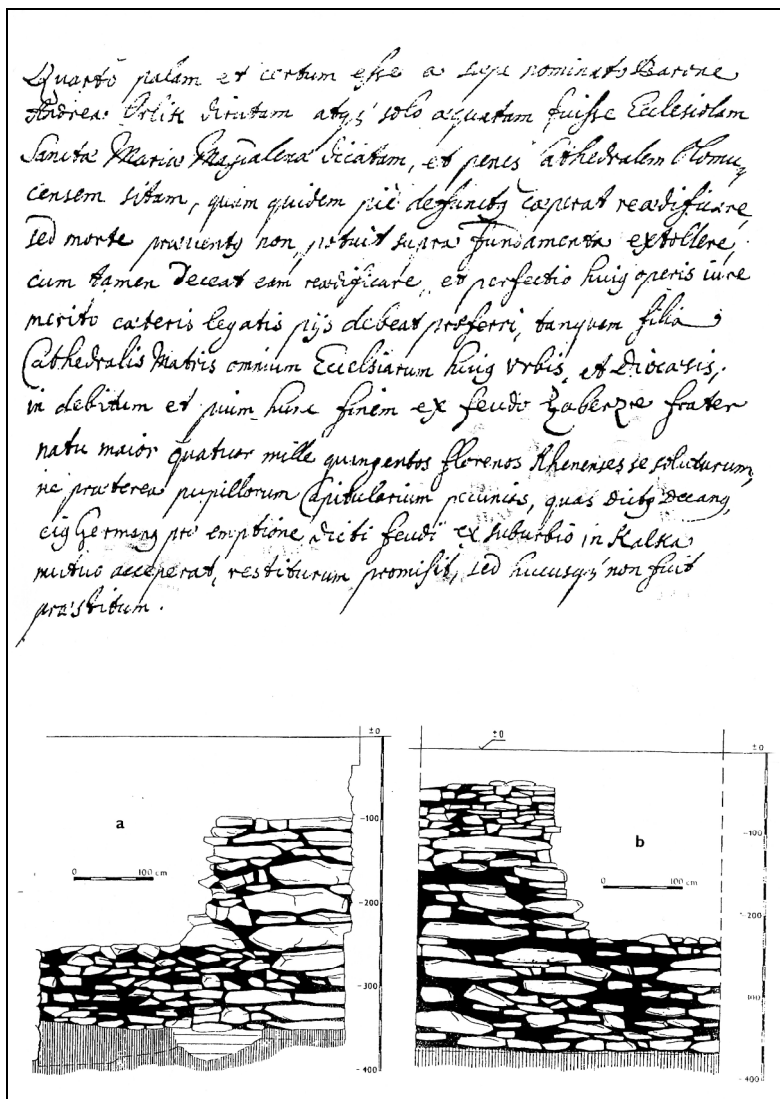 Quarto palam et certum esse a sepe nominato Barone
Andrea Orlik dirutam atq; solo aequatam fuisse Ecclesiolam
Sancta Maria Magdalena dicatam, et penes Cathedralem Olomu,
censem sitam, quam quidem piè defunctq caeperat readificare,
sed morte praeventq non potuit supra fundamenta extollere,
cum tamen deceat eam readificare, et perfectio huiq operis iure
merito caeteris legatis pijs debeat praeferri, tanquam filia
Cathedralis Matris omnium Ecclesiarum huiq Vrbis, et Diocaesis,
in debitum et pium hunc finem ex feudo Zaberzre frater
natu maior quatuor mille quingentos florenos Rhenenses se soluturum,
ne praeterea pupillorum Capitularium pecunias, quas dictq Decanq,
eiq Germanq pro emptione dicti feudi ex suburbio in Kalka
mutuo acceperat, restiturum promisit, sed hucusq; non fuit
praestitum.
±0 ±0 ±0
a
-100 -100
b
0 100 cm
0 100 cm
-200 -200
-300 300
-400 -400